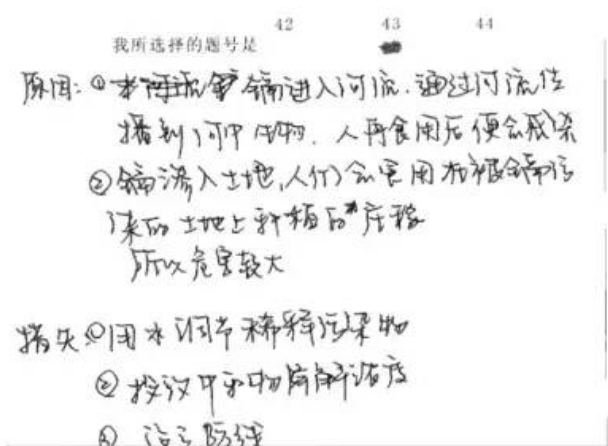 42 43 44
我所选择的题号是
原因:①镉进入河流.通过河流传
播到河中生物.人再食用后便会感染
②镉渗入土地,人们会食用在被镉污
染的土地上种植的庄稼
所以危害较大
措失:①用水调节稀释污染物
②投放中和物质降解浓度
③设立防线